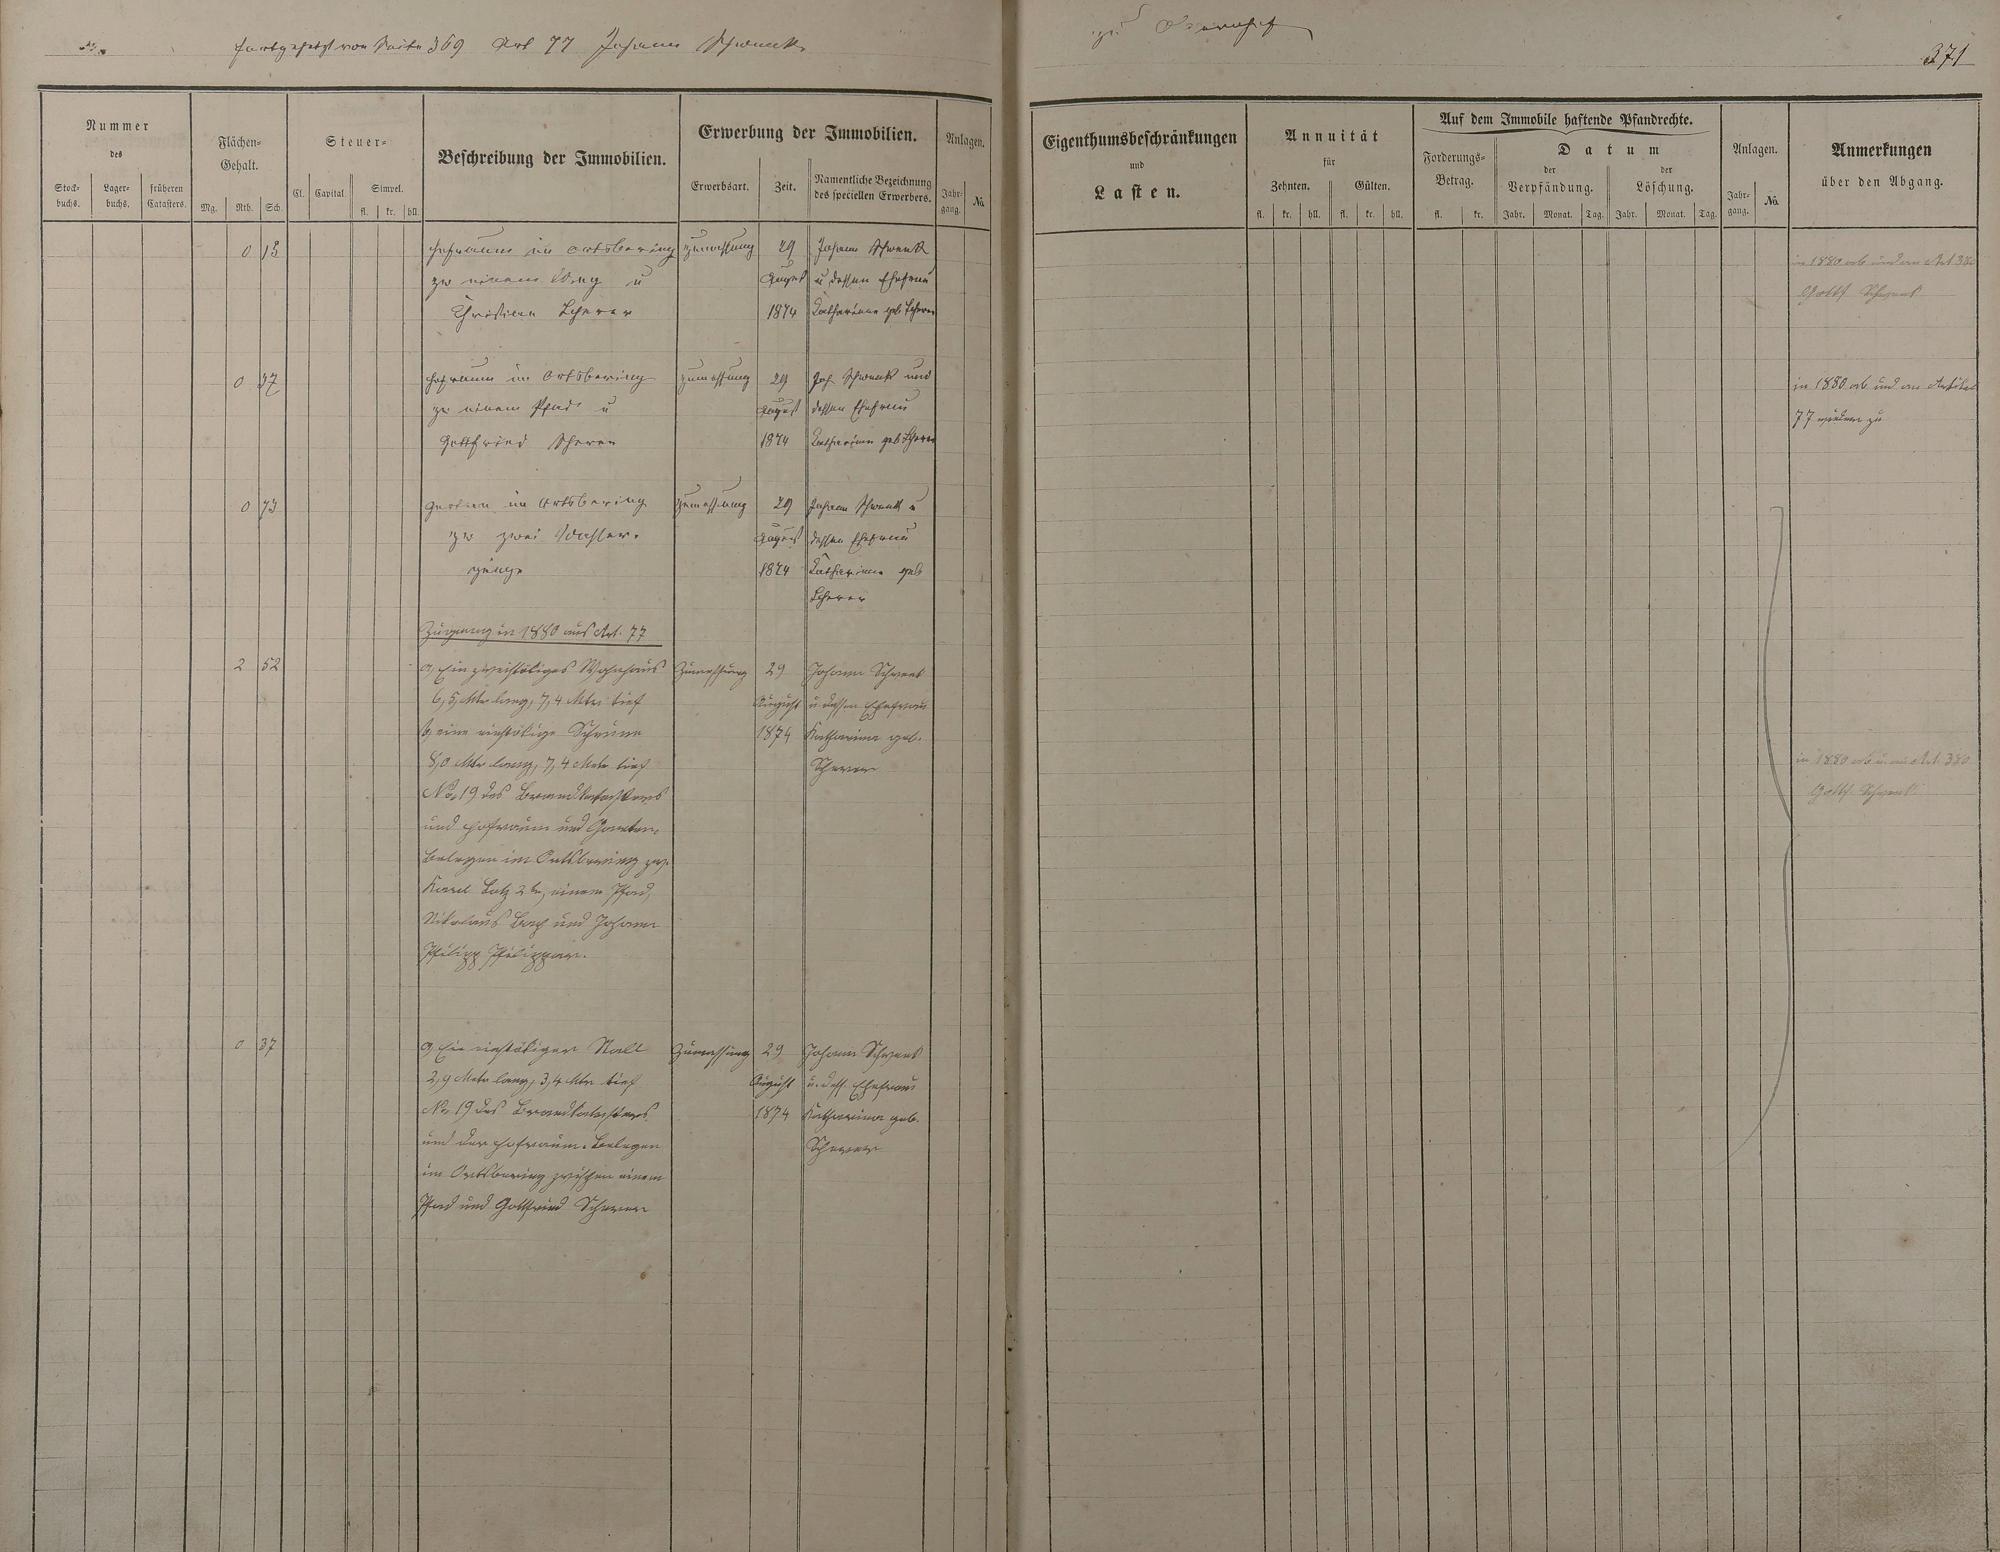 fortgesetzt von Seite 369 Art 77 Johann Schwenk
zu
371
Nummer
des
Stock-
buchs.
Lager-
buchs.
früheren
Catasters.
Flächen-
Gehalt.
Mg. Rth. Sch.
Steuer-
Cl. Capital.
Simpel.
fl. kr. hll.
Beschreibung der Immobilien.
Erwerbung der Immobilien.
Erwerbsart. Zeit.
Namentliche Bezeichnung
des speciellen Erwerbers.
Anlagen.
Jahr-
gang. No.
Eigenthumsbeschränkungen
und
Lasten.
Annuität
für
Zehnten. Gülten.
fl. kr. hll. fl. kr. hll.
Auf dem Immobile haftende Pfandrechte.
Forderungs-
Betrag.
fl. kr.
Datum
der
Verpfändung.
der
Löschung.
Jahr. Monat. Tag. Jahr. Monat. Tag.
Anlagen.
Jahr-
gang. No.
Anmerkungen
über den Abgang.
0 13 Hofraum im Ortsbering Zumessung 29 Johann Schwenk
zw einem Weg u August u dessen Ehefrau
Christian Scherer 1874 Katharina geb Scherer
in 1880 ab und an Art 380
Gottf. Schwenk
0 37 Hofraum im Ortsbering Zumessung 29 Joh Schwenk und
zw einem Pfad u August dessen Ehefrau
Gottfried Scherer 1874 Katharina geb Scherer
in 1880 ab und an Artikel
77 wieder zu
0 73 Garten im Ortsbering Zumessung 29 Johann Schwenk u
zw zwei Wasser- August dessen Ehefrau
gänge 1874 Katharina geb
Scherer
Zugang in 1880 aus Art. 77
2 52 a, Ein zweistökiges Wohnhaus Zumessung 29 Johann Schwenk
6,5 Mtr lang, 7,4 Mtr tief August u dessen Ehefrau
b, eine einstökige Scheune 1874 Katharina geb.
8,0 Mtr lang, 7,4 Mtr tief Scherer
No. 19 des Brandkatasters
und Hofraum und Garten.
Belegen im Ortsbering zw.
Karl Lotz 2r, einem Pfad,
Nikolaus Bach und Johann
Philipp Philippar.
in 1880 ab u. an Art. 380
Gottf. Schwenk
0 37 a, Ein einstökiger Stall Zumessung 29 Johann Schwenk
2,9 Mtr lang, 3,4 Mtr tief August u. dess. Ehefrau
No. 19 des Brandkatasters 1874 Katharina geb.
und der Hofraum. Belegen Scherer
im Ortsbering zwischen einem
Pfad und Gottfried Scherer